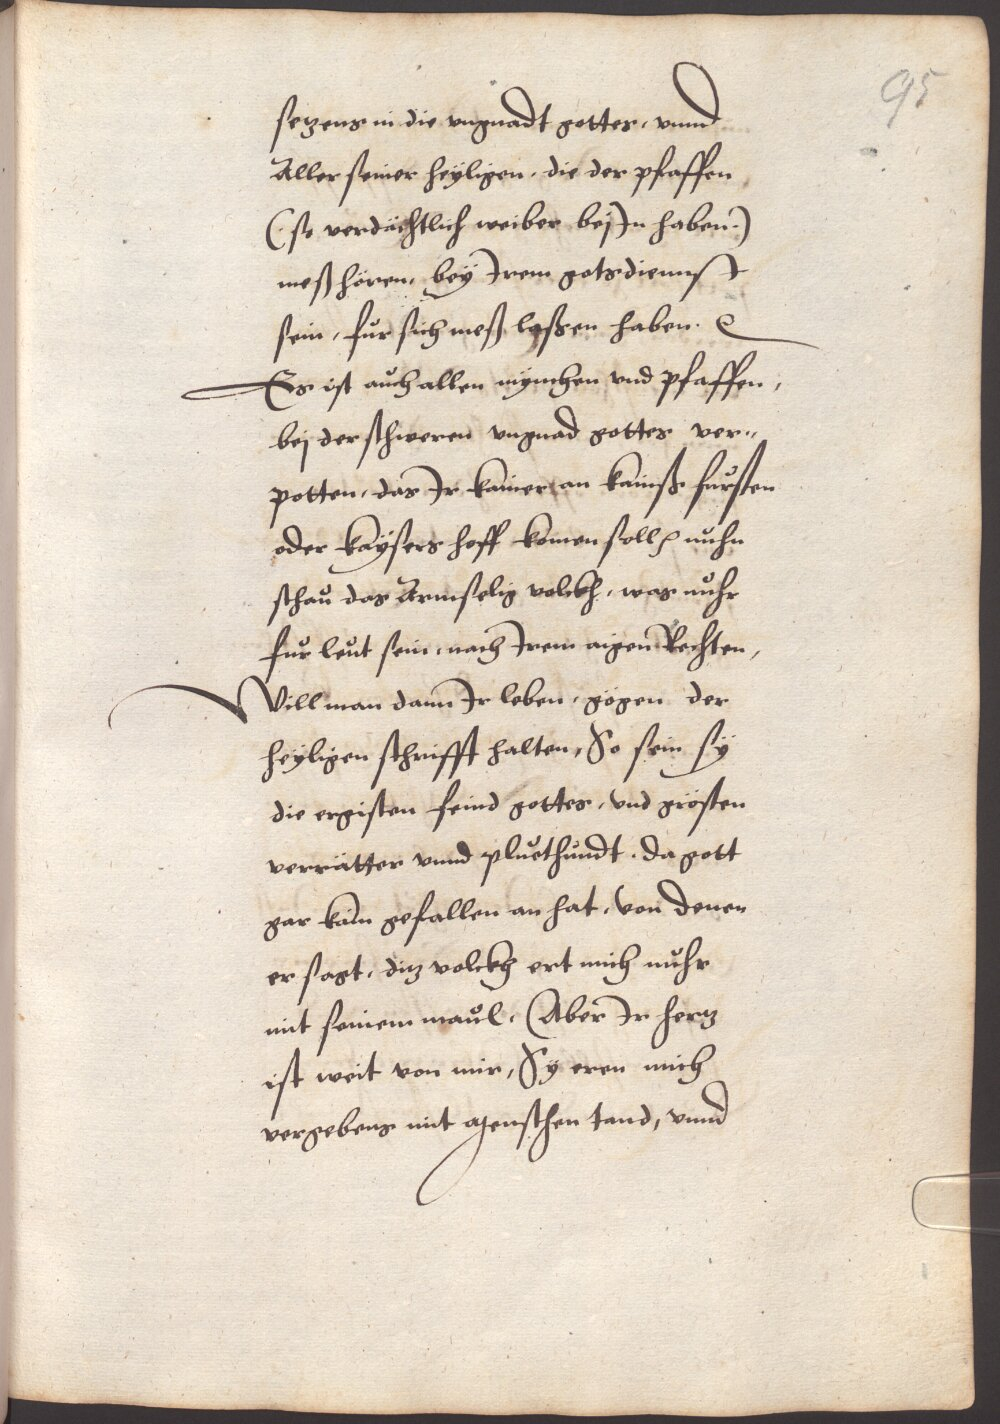 95
setzens in die ungnadt gottes, unnd
Aller seiner heyligen, die der pfaffen
(so verdächtlich weiber bej Jn haben.)
meß hören, bey Jrem gotsdiennst
sein, fur sich meß laßen haben.
Es ist auch allen mynchen und pfaffen,
bej der schweren ungnad gottes ver„
potten, das Jr kainer an kainß fursten
oder kaysers hoff komen soll, nuhn
schau das Armselig volckh, was nuhr
fur leut sein, nach Jrem aigen Rechten,
Will man dann Jr leben, gegen der
heyligen schrifft halten, So sein sy
die ergisten feind gottes, und grösten
verrätter unnd pluethundt, da gott
gar kain gefallen an hat, von denen
er sagt, ditz volckh ert mich nuhr
mit seinem maul, Aber Jr hertz
ist weit von mir, Sy eren mich
vergebens mit menschen tand, unnd